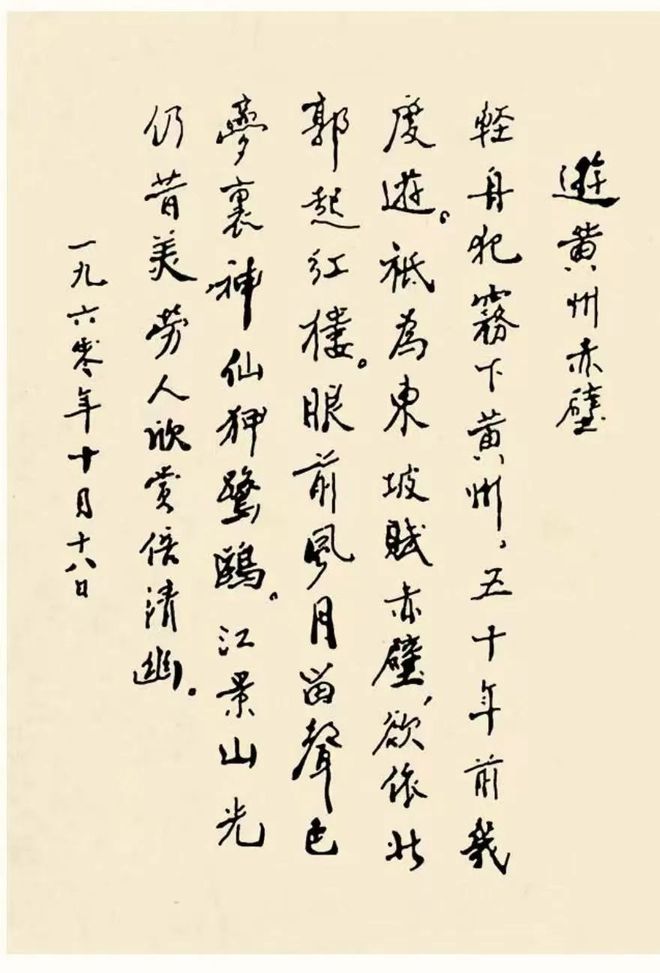 遊黄州赤壁
輕舟犯霧下黄州，五十年前幾
度遊。祇為東坡賦赤壁，欲依北
郭起紅樓。眼前風月留聲色
夢裏神仙狎鷺鷗。江景山光
仍昔美劳人欣赏倍清幽。
一九六零年十月十八日